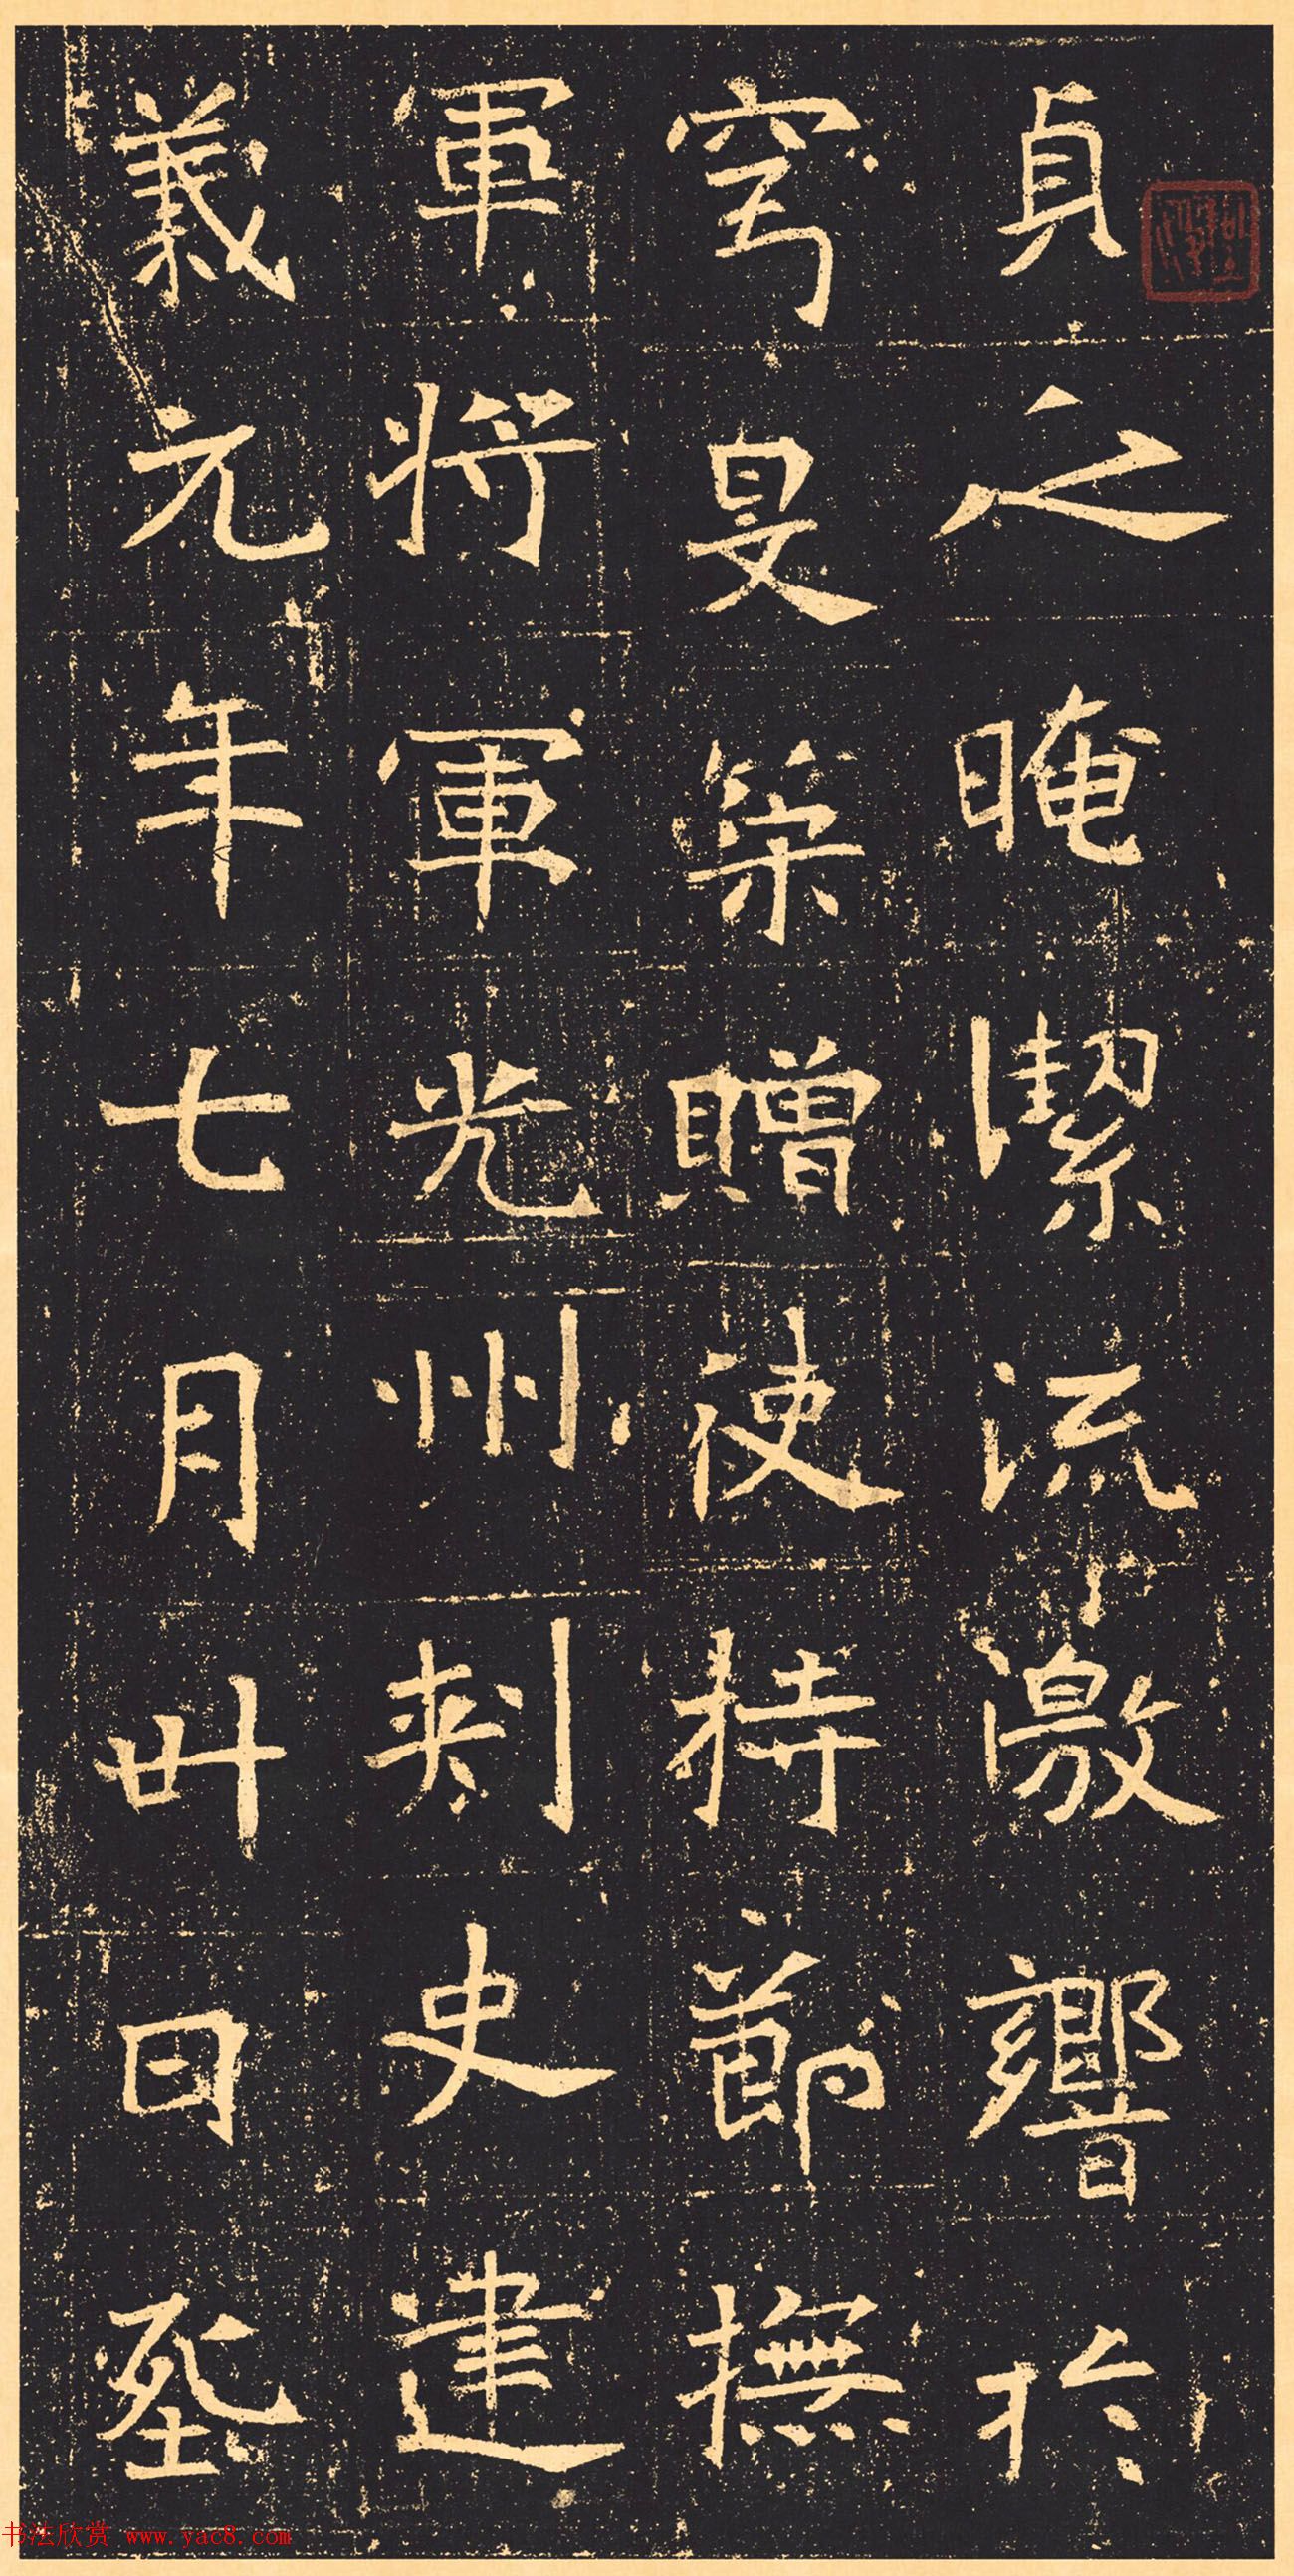 貞之晻潔流激響於
穹旻策贈使持節撫
軍將軍光州刺史建
義元年七月卅日塟
书法欣赏 www.yac8.com